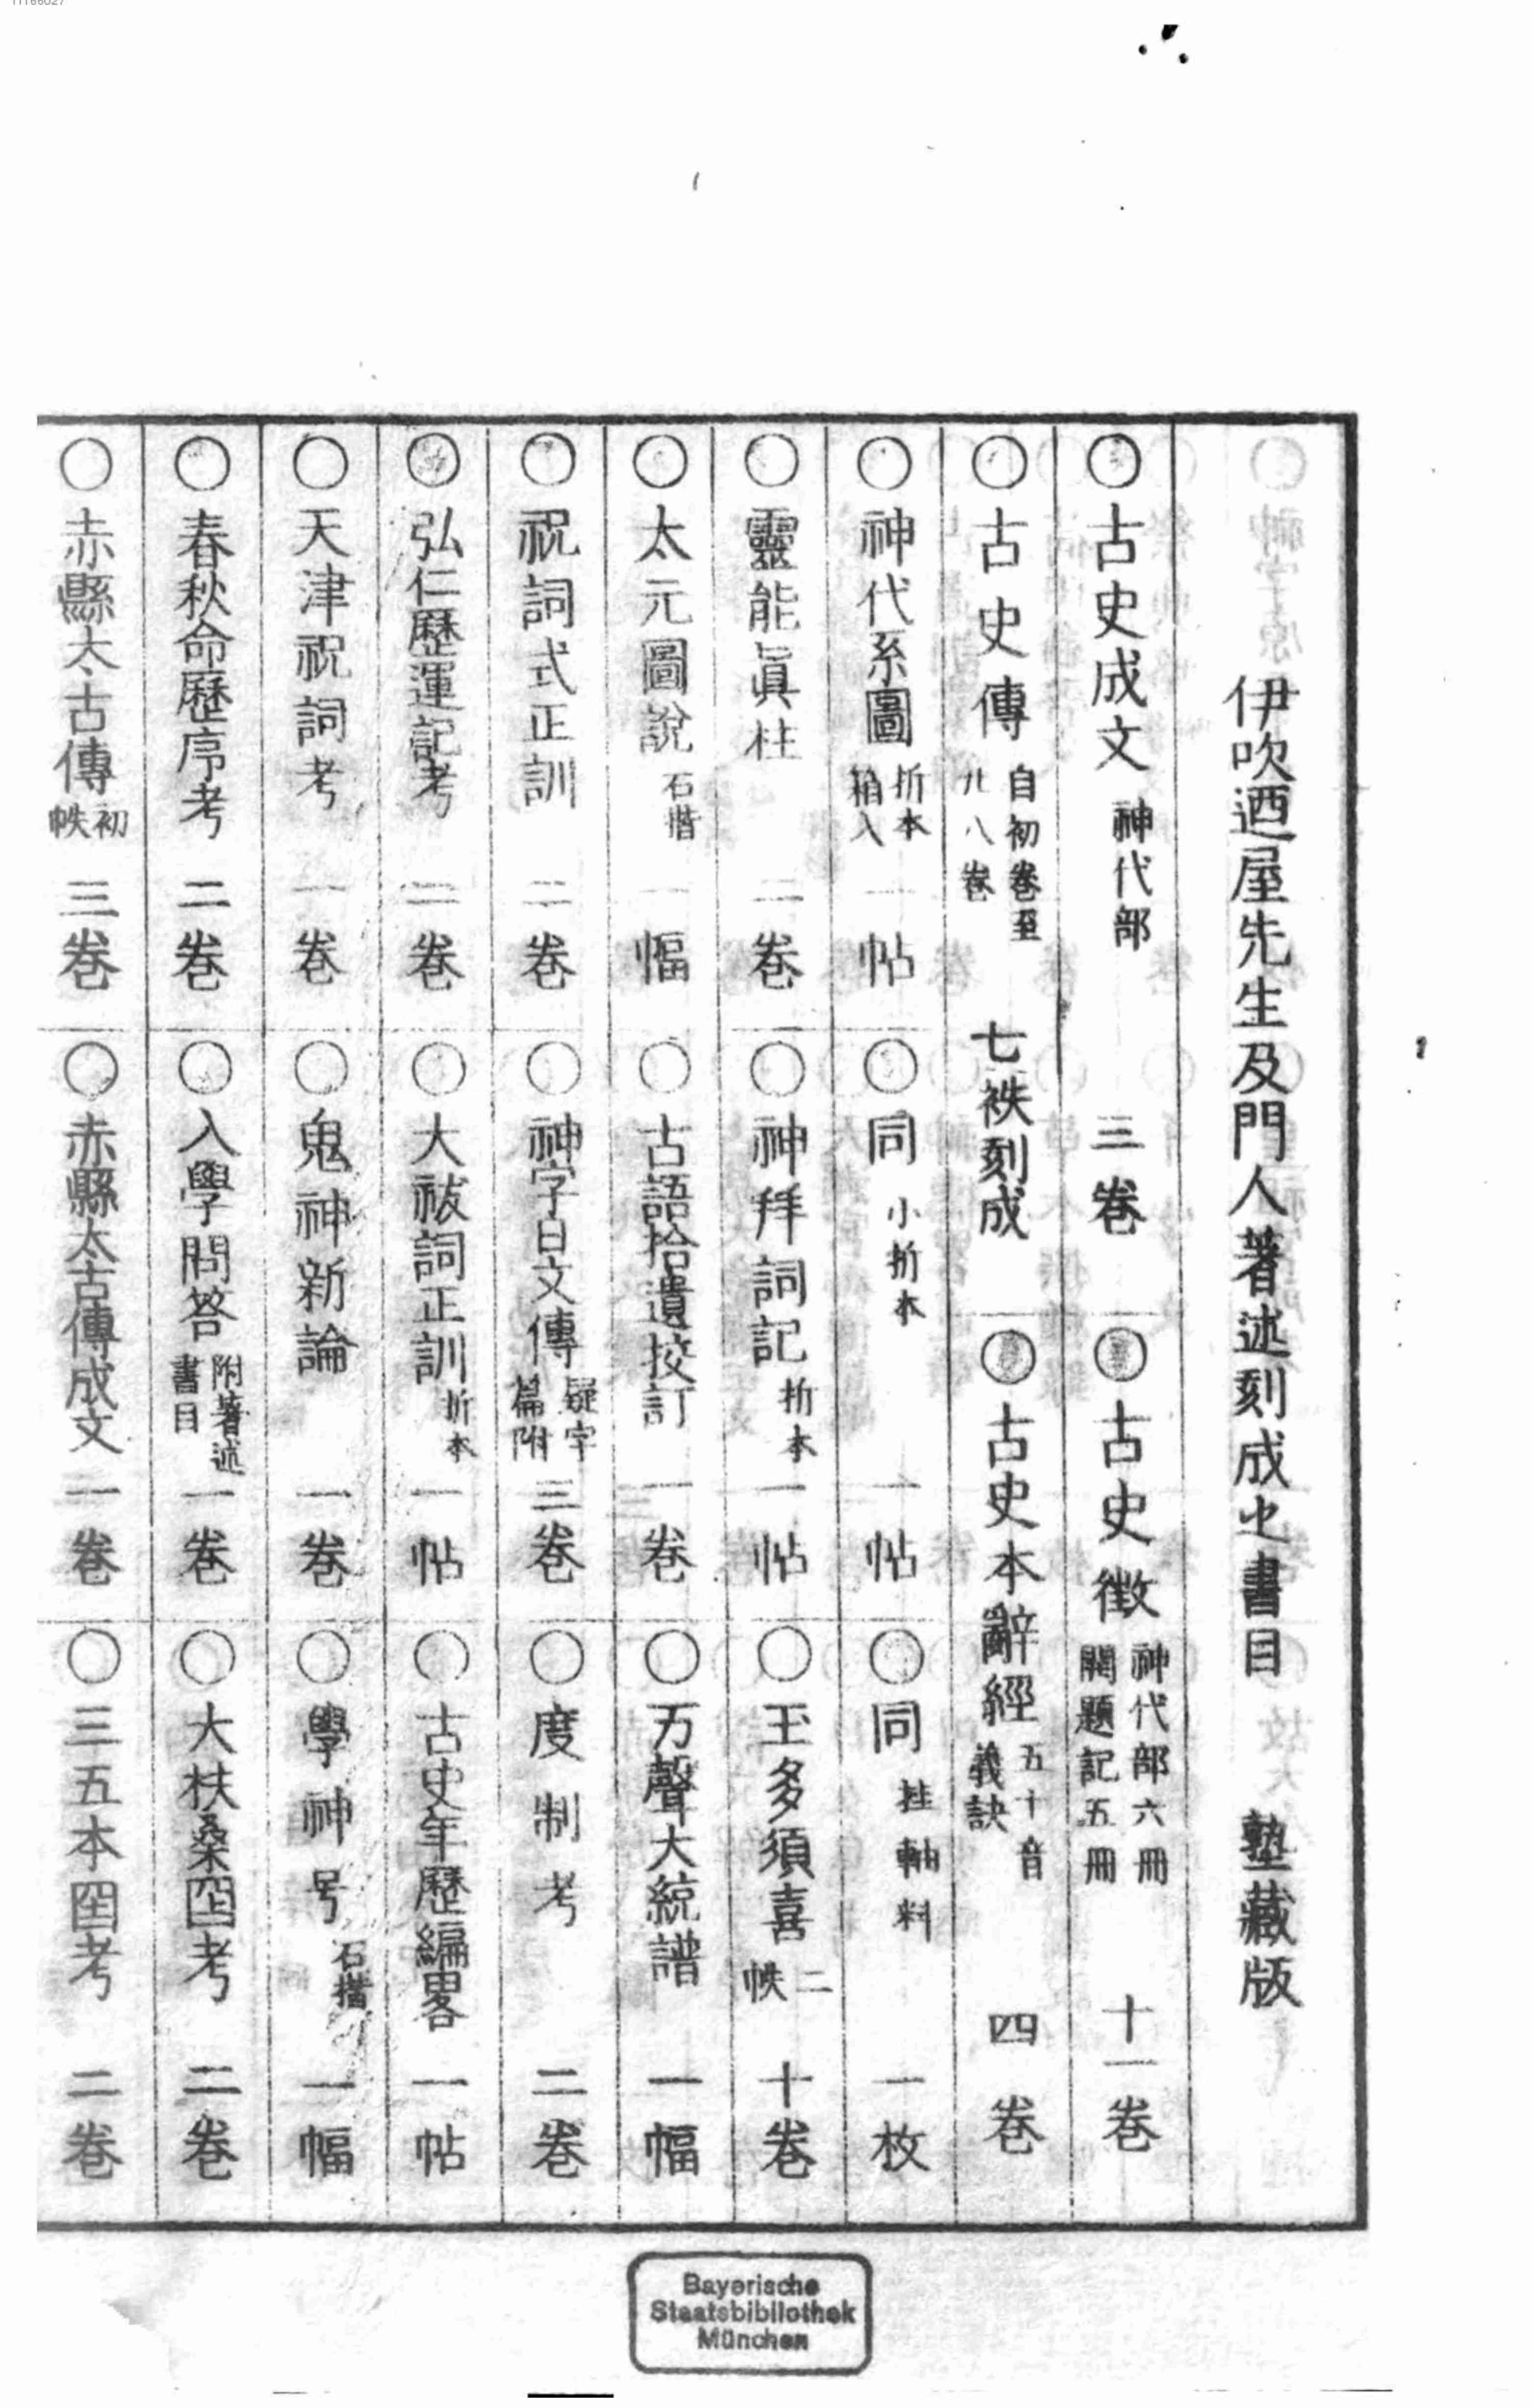 伊吹迺屋先生及門人著述刻成之書目 塾藏版
○古史成文 神代部 三卷 ○古史徴 神代部六冊 開題記五冊 十一卷
○古史傳 自初卷至廿八卷 七袟刻成 ○古史本辭經 五十音義訣 四卷
○神代系圖 折本箱入 一帖 ○同 小折本 一帖 ○同 挂軸料 一枚
○靈能眞柱 二卷 ○神拜詞記 折本 一帖 ○玉多須喜 二帙 十卷
○太元圖說 石摺 一幅 ○古語拾遺挍訂 一卷 ○万聲大統譜 一幅
○祝詞式正訓 二卷 ○神字日文傳 疑字篇附 三卷 ○度制考 二卷
○弘仁歷運記考 二卷 ○大祓詞正訓 折本 一帖 ○古史年歷編畧 一帖
○天津祝詞考 一卷 ○鬼神新論 一卷 ○學神号 石摺 一幅
○春秋命歷序考 二卷 ○入學問答 附著述書目 一卷 ○大扶桑国考 二卷
○赤縣太古傳 初帙 三卷 ○赤縣太古傳成文 一卷 ○三五本国考 二卷
Bayerische
Staatsbibliothek
München
11166027